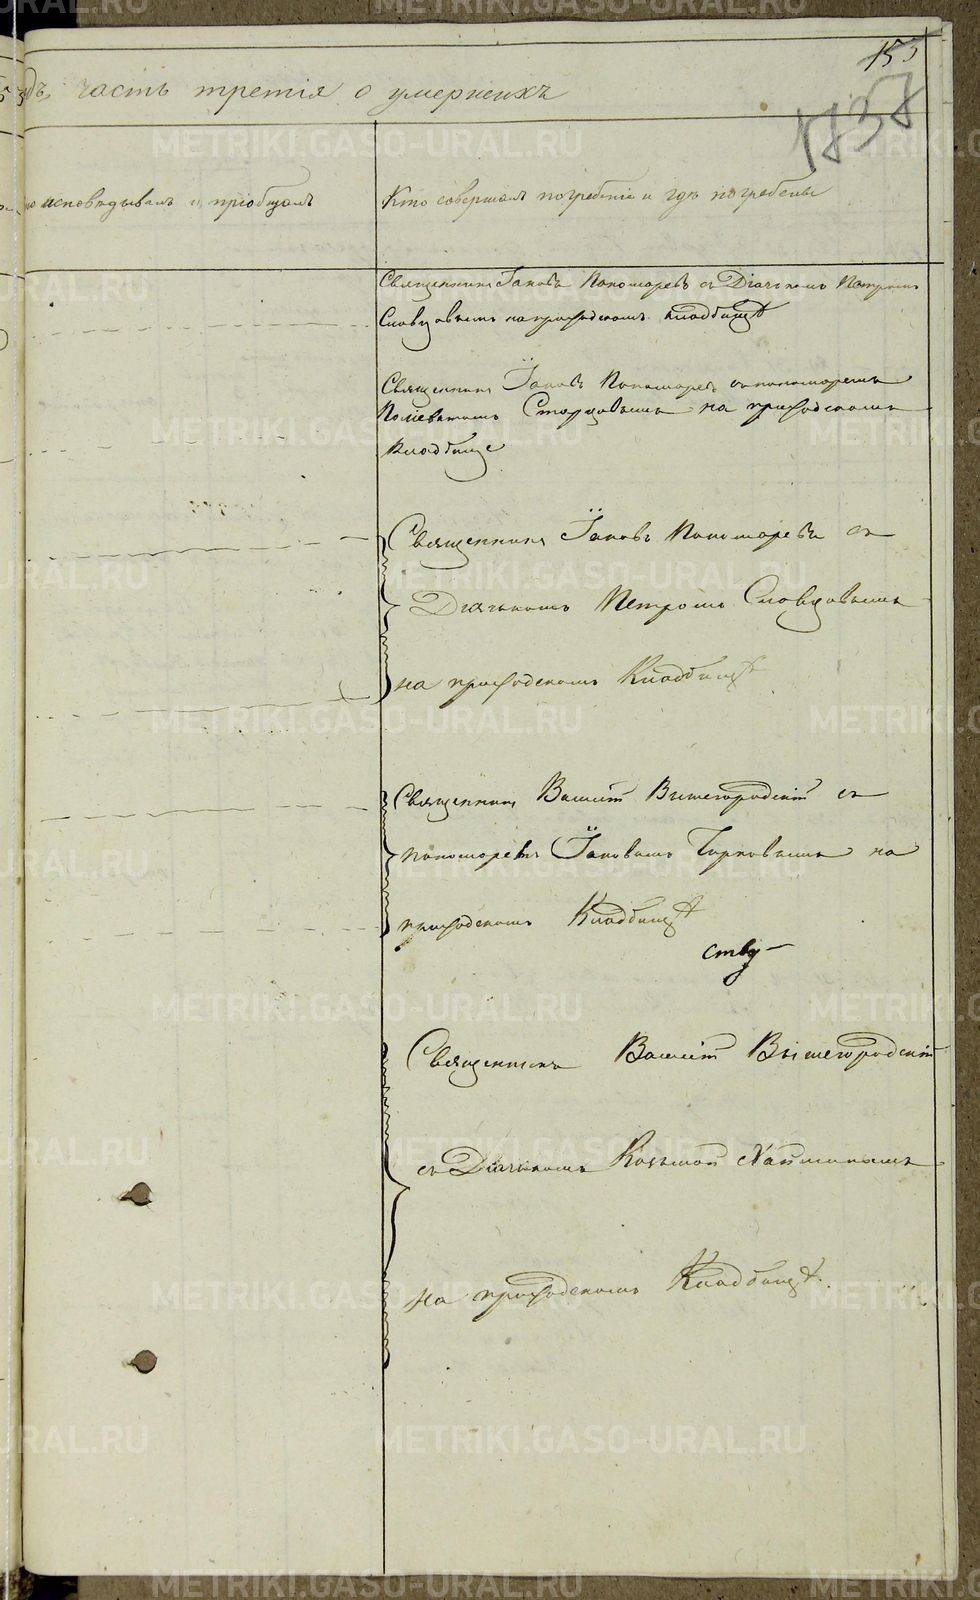 153
1838
дъ часть третія о умершихъ
исповѣдывалъ и пріобщалъ
Кто совершалъ погребеніе и гдѣ погребены
Священникъ Іаковъ Пономаревъ съ Діячкомъ Петромъ
Словцовымъ на приходскомъ кладбищѣ
Священникъ Іаковъ Пономаревъ съ пономаремъ
Старцовымъ на приходскомъ
Кладбище
Священникъ Іаковъ Пономаревъ съ
Діячькомъ Петромъ Словцовымъ
на приходскомъ Кладбищѣ
Священникъ Василій Вышегородскій съ
пономаремъ Іаковымъ на
приходскомъ Кладбищѣ
ству
Священникъ Василій Вышегородскій
съ Діячькомъ Козьмой
на приходскомъ Кладбищѣ.
METRIKI.GASO-URAL.RU